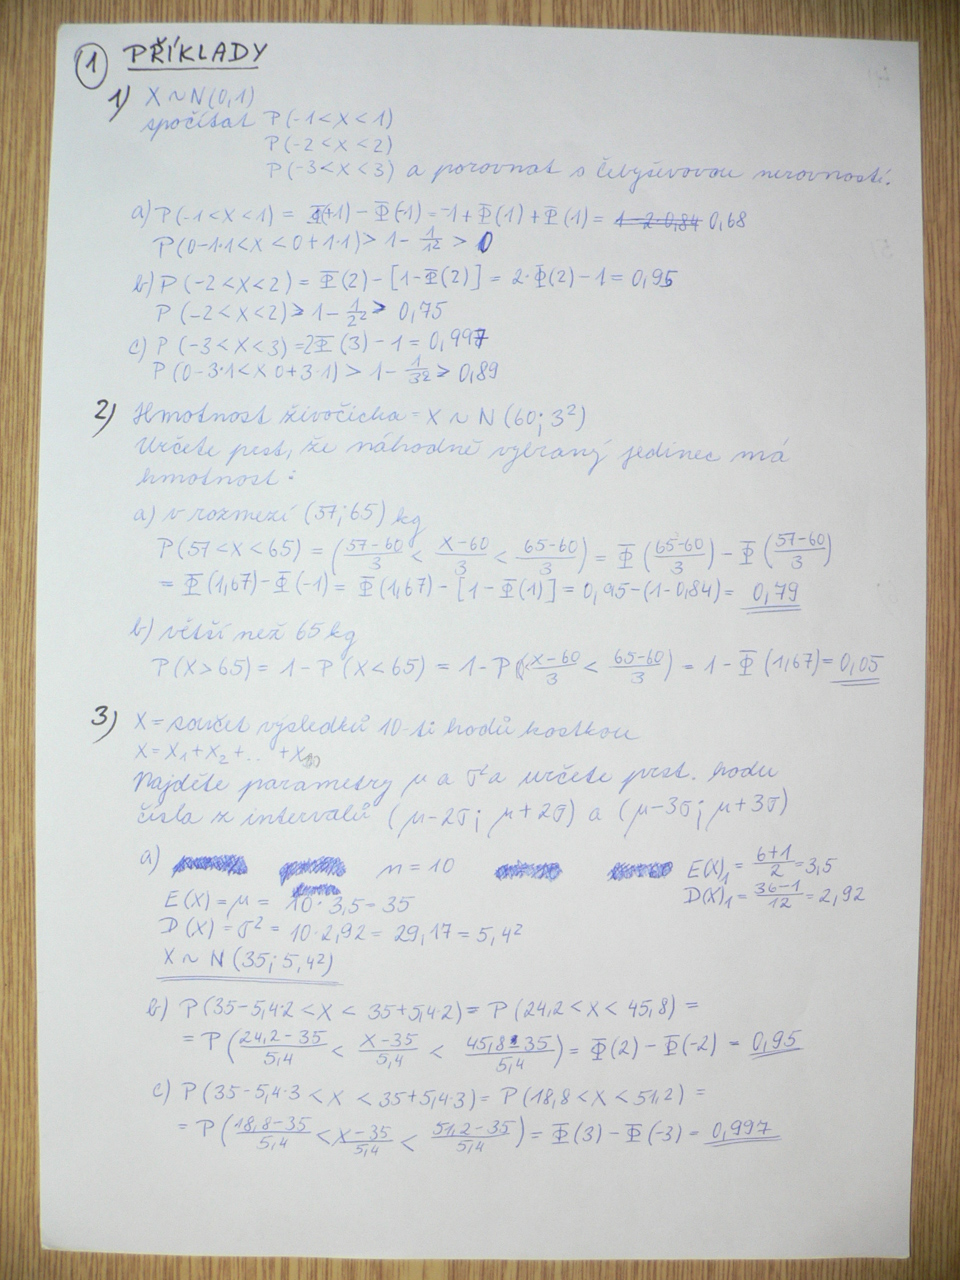 1 PŘÍKLADY
1) X ~ N(0,1)
spočítat P(-1 < X < 1)
P(-2 < X < 2)
P(-3 < X < 3) a porovnat s Čebyševovou nerovností.
a) P(-1 < X < 1) = Φ(+1) - Φ(-1) = -1 + Φ(1) + Φ(1) = 1-2·0,84 0,68
P(0-1·1 < X < 0+1·1) > 1 - 1/1² > 0
b) P(-2 < X < 2) = Φ(2) - [1 - Φ(2)] = 2·Φ(2) - 1 = 0,95
P(-2 < X < 2) ≥ 1 - 1/2² ≥ 0,75
c) P(-3 < X < 3) = 2Φ(3) - 1 = 0,997
P(0-3·1 < X 0+3·1) > 1 - 1/3² ≥ 0,89
2) Hmotnost živočicha = X ~ N(60; 3²)
Určete prst, že náhodně vybraný jedinec má
hmotnost:
a) v rozmezí (57; 65) kg
P(57 < X < 65) = (57-60/3 < X-60/3 < 65-60/3) = Φ(65-60/3) - Φ(57-60/3)
= Φ(1,67) - Φ(-1) = Φ(1,67) - [1 - Φ(1)] = 0,95 - (1-0,84) = 0,79
b) větší než 65 kg
P(X > 65) = 1 - P(X < 65) = 1 - P(X-60/3 < 65-60/3) = 1 - Φ(1,67) = 0,05
3) X = součet výsledků 10-ti hodů kostkou
X = X₁ + X₂ + .. + X₁₀
Najděte parametry μ a σ² a určete prst. hodu
čísla z intervalů (μ-2σ; μ+2σ) a (μ-3σ; μ+3σ)
a) n = 10 E(X)₁ = 6+1/2 = 3,5
D(X)₁ = 36-1/12 = 2,92
E(X) = μ = 10·3,5 = 35
D(X) = σ² = 10·2,92 = 29,17 = 5,4²
X ~ N(35; 5,4²)
b) P(35-5,4·2 < X < 35+5,4·2) = P(24,2 < X < 45,8) =
= P(24,2-35/5,4 < X-35/5,4 < 45,8-35/5,4) = Φ(2) - Φ(-2) = 0,95
c) P(35-5,4·3 < X < 35+5,4·3) = P(18,8 < X < 51,2) =
= P(18,8-35/5,4 < X-35/5,4 < 51,2-35/5,4) = Φ(3) - Φ(-3) = 0,997